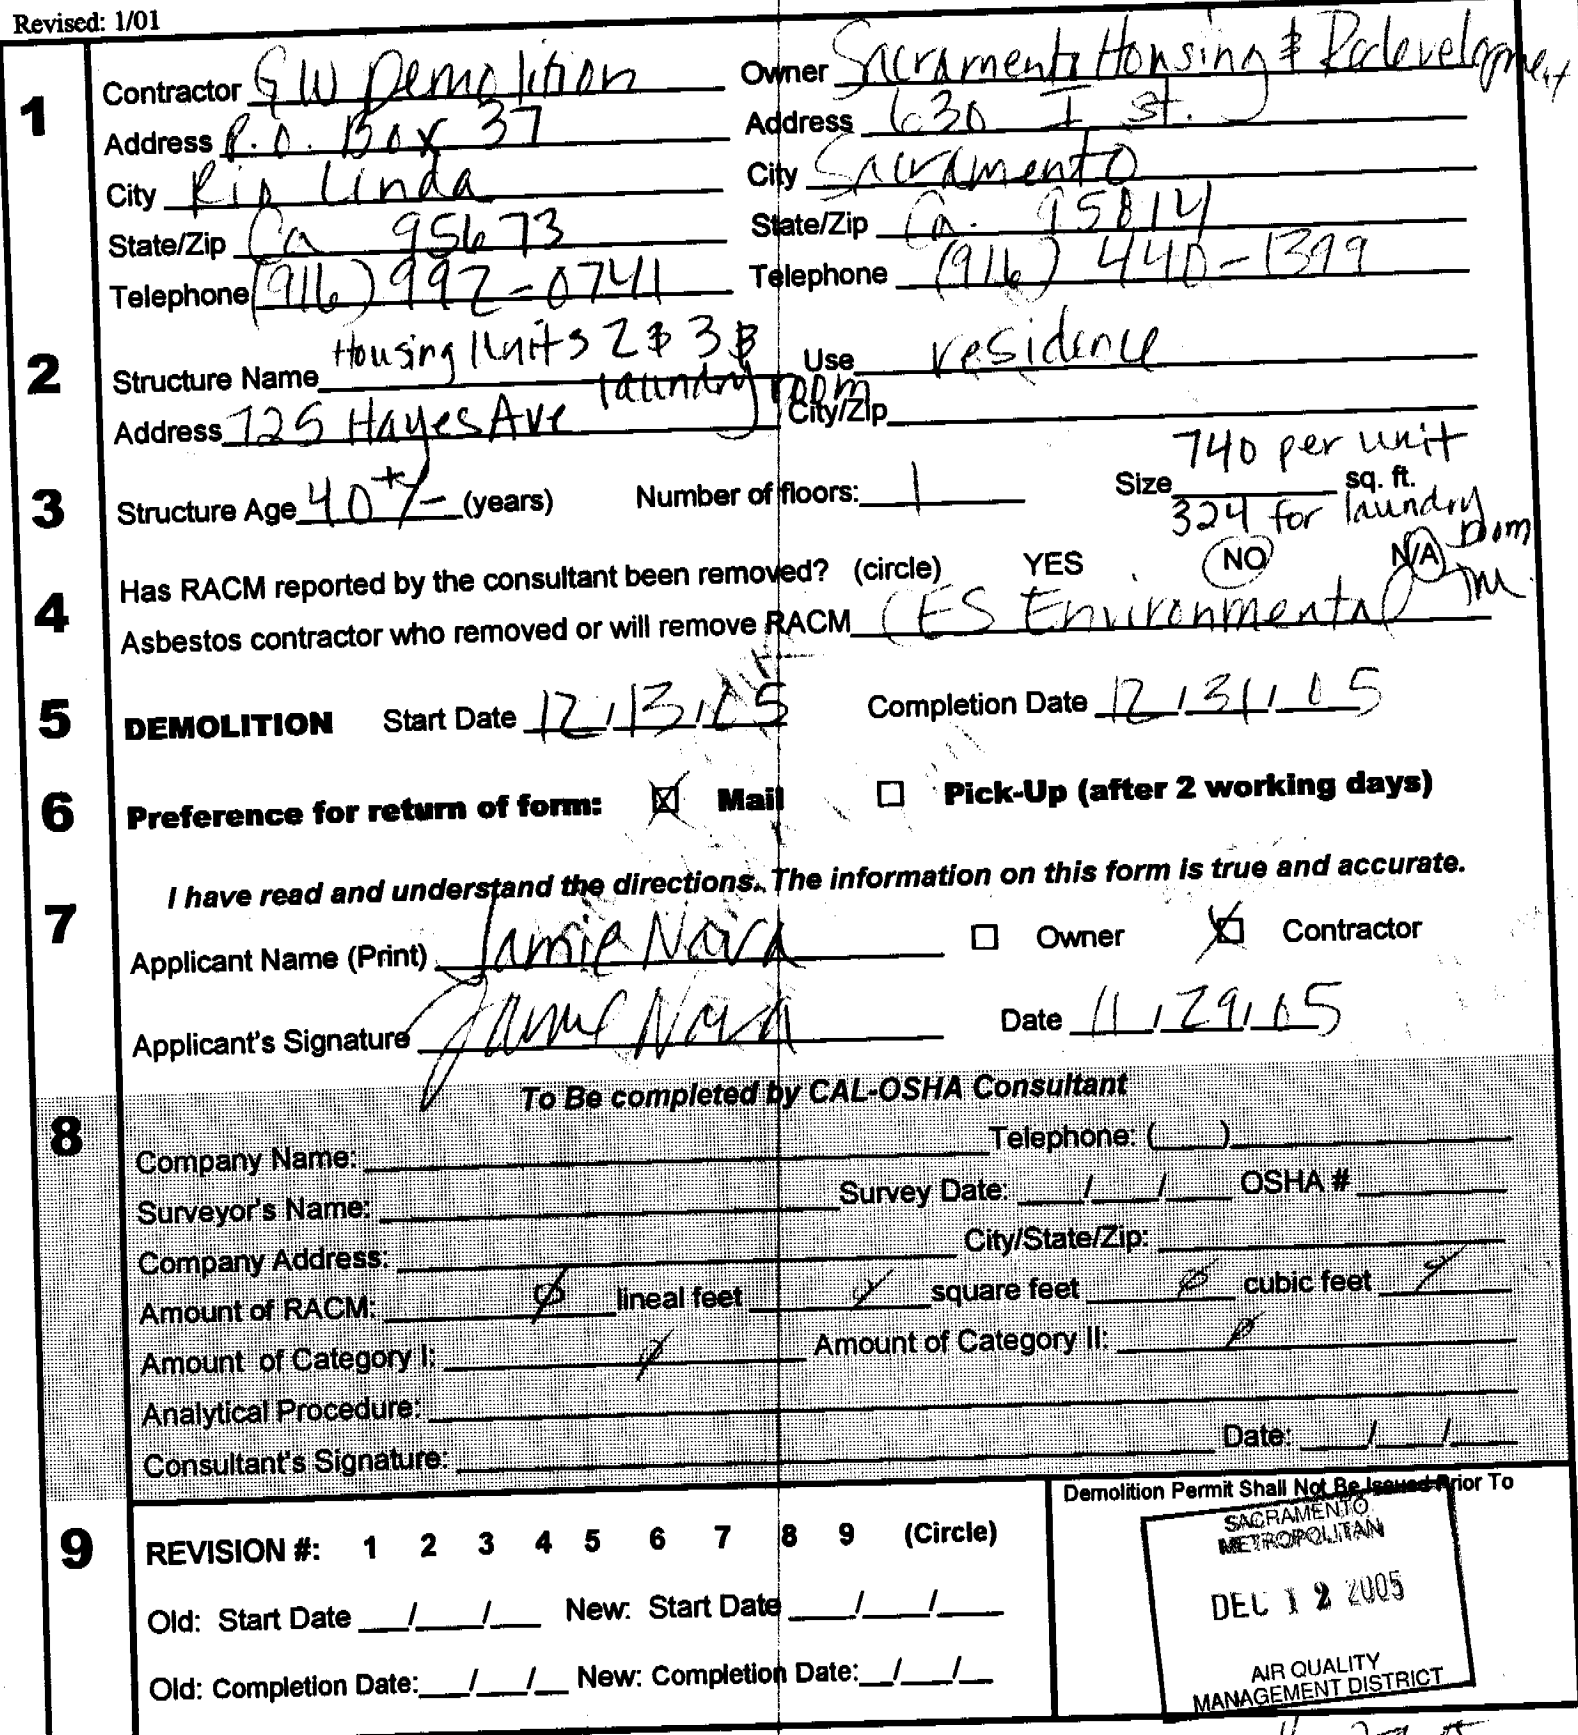 Revised: 1/01
1
Contractor GW Demolition Owner Sacramento Housing & Redevelopment
Address P.O. Box 37 Address 630 I St.
City Rio Linda City Sacramento
State/Zip Ca 95673 State/Zip Ca. 95814
Telephone (916) 992-0741 Telephone (916) 440-1399
2
Structure Name Housing Units 2 & 3 & laundry room Use residence
Address 725 Hayes Ave City/Zip
3
Structure Age 40 +/- (years) Number of floors: 1 Size 740 per unit sq. ft.
324 for laundry room
4
Has RACM reported by the consultant been removed? (circle) YES NO N/A
Asbestos contractor who removed or will remove RACM CES Environmental
5
DEMOLITION Start Date 12/13/05 Completion Date 12/31/05
6
Preference for return of form: Mail Pick-Up (after 2 working days)
I have read and understand the directions. The information on this form is true and accurate.
7
Applicant Name (Print) Jamie Nava Owner Contractor
Applicant's Signature Jamie Nava Date 11/29/05
To Be completed by CAL-OSHA Consultant
8
Company Name: Telephone: ( )
Surveyor's Name: Survey Date: / / OSHA #
Company Address: City/State/Zip:
Amount of RACM: Ø lineal feet Ø square feet Ø cubic feet Ø
Amount of Category I: Ø Amount of Category II: Ø
Analytical Procedure:
Consultant's Signature: Date: / /
9
REVISION #: 1 2 3 4 5 6 7 8 9 (Circle)
Old: Start Date / / New: Start Date / /
Old: Completion Date: / / New: Completion Date: / /
Demolition Permit Shall Not Be Issued Prior To
SACRAMENTO
METROPOLITAN
DEC 12 2005
AIR QUALITY
MANAGEMENT DISTRICT